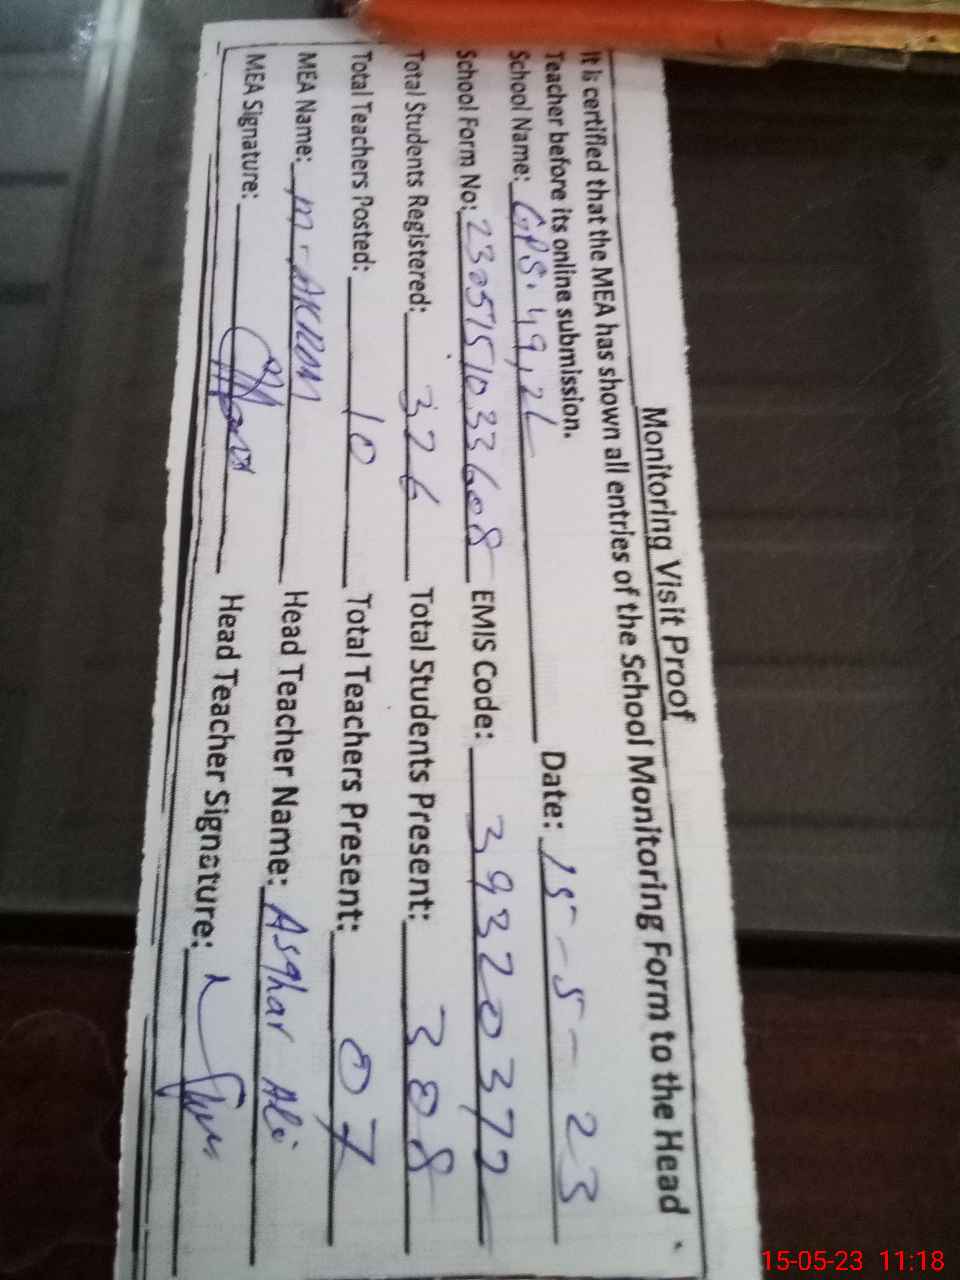 Monitoring Visit Proof
It is certified that the MEA has shown all entries of the School Monitoring Form to the Head
Teacher before its online submission.
School Name: GPS. 49,2L Date: 15-5-23
School Form No: 2305151033608 EMIS Code: 39320372
Total Students Registered: 326 Total Students Present: 308
Total Teachers Posted: 10 Total Teachers Present: 07
MEA Name: M-AKRAM Head Teacher Name: Asghar Ali
MEA Signature: Head Teacher Signature:
15-05-23 11:18